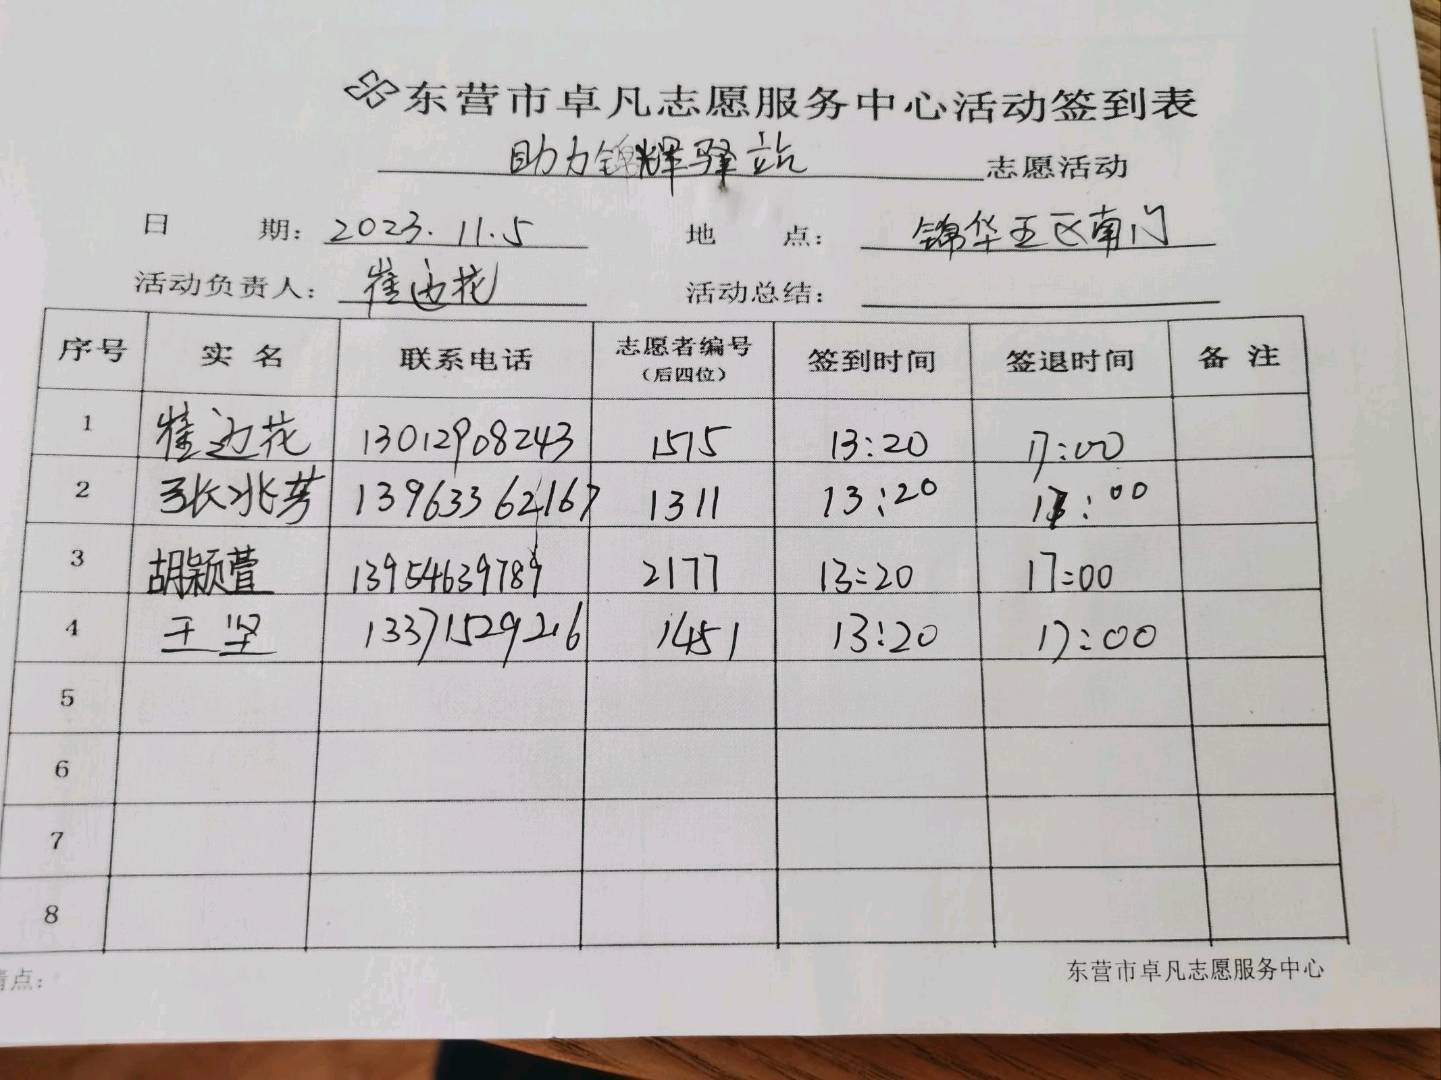 东营市卓凡志愿服务中心活动签到表
助力锦辉驿站 志愿活动
日 期: 2023.11.5 地 点: 锦华五区南门
活动负责人: 崔边花 活动总结:
序号 实名 联系电话 志愿者编号(后四位) 签到时间 签退时间 备注
1 崔边花 13012908243 1515 13:20 17:00
2 张兆芳 13963362167 1311 13:20 17:00
3 胡颖萱 13954639789 2177 13:20 17:00
4 王坚 13371529216 1451 13:20 17:00
5
6
7
8
点: 东营市卓凡志愿服务中心